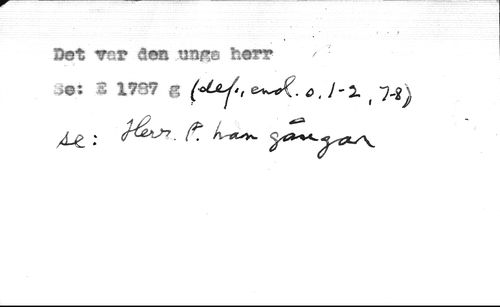 Det var den unge herr
Se: E 1787 g (def., end. o. 1-2, 7-8)
se: Herr P. han gångar